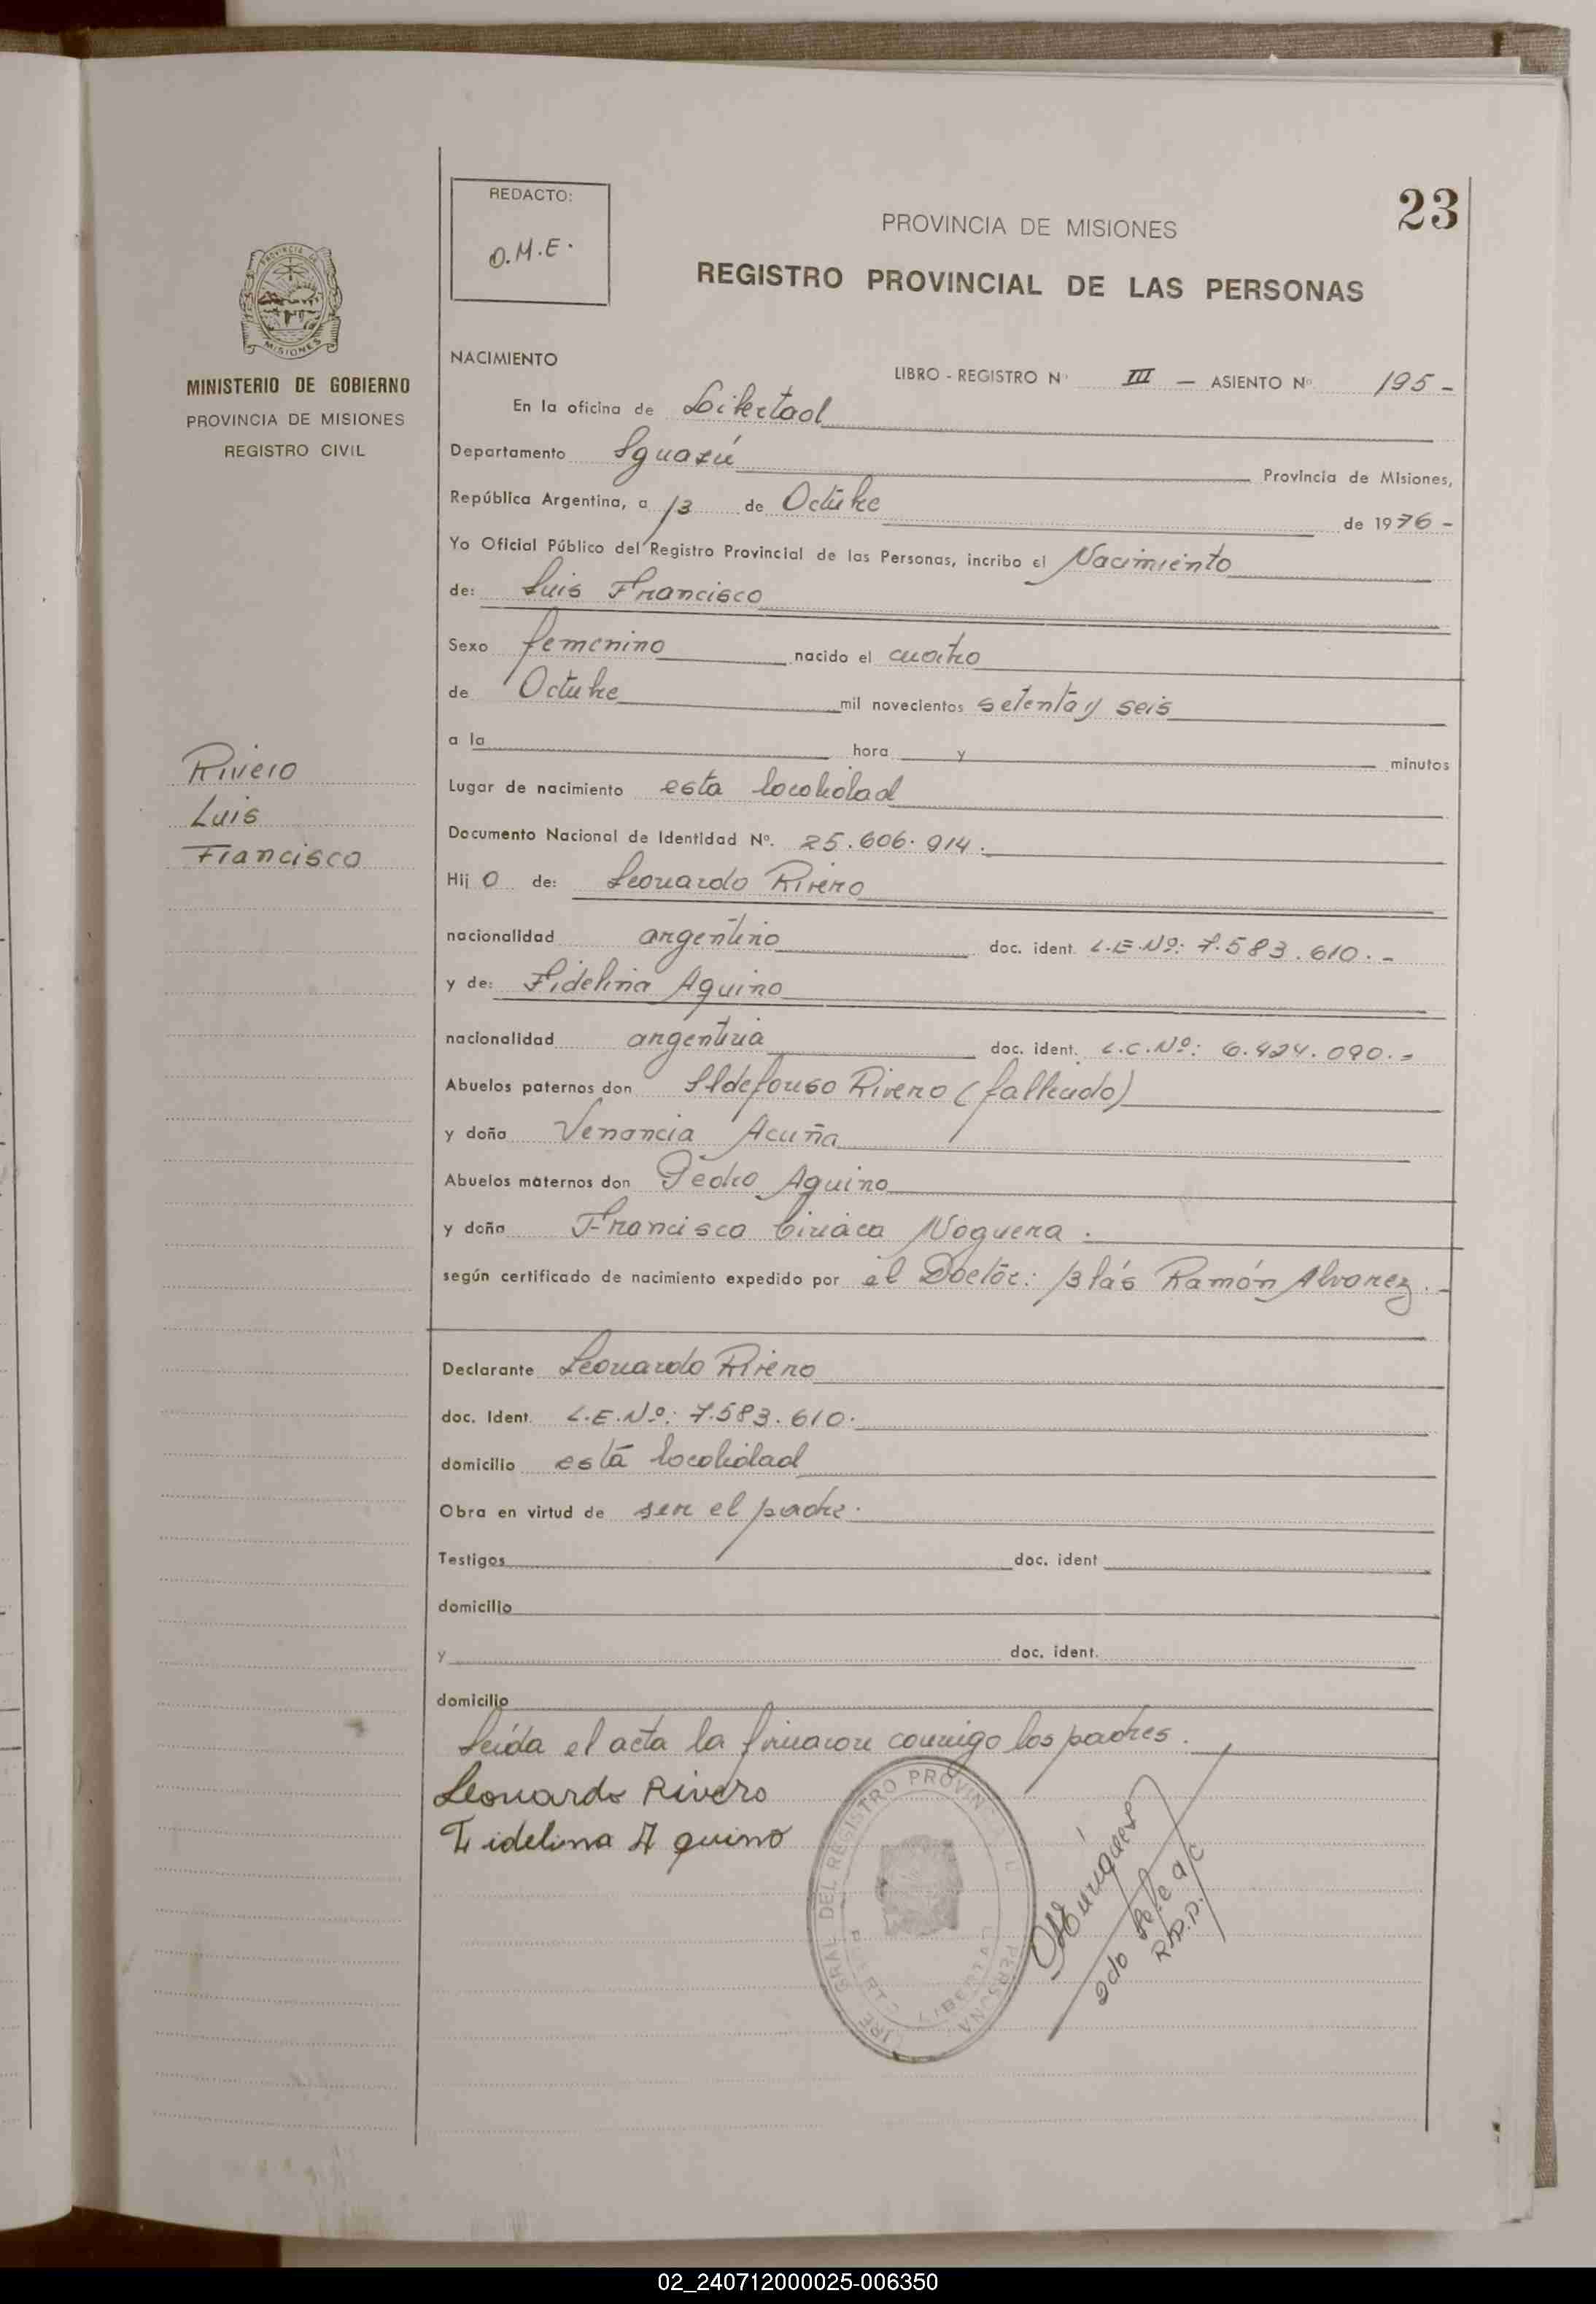 23
REDACTO:
O.M.E.
PROVINCIA DE MISIONES
REGISTRO PROVINCIAL DE LAS PERSONAS
PROVINCIA DE
MISIONES
MINISTERIO DE GOBIERNO
PROVINCIA DE MISIONES
REGISTRO CIVIL
NACIMIENTO
LIBRO - REGISTRO Nº III — ASIENTO Nº 195 -
En la oficina de Libertad
Departamento Iguazú Provincia de Misiones,
República Argentina, a 13 de Octubre de 1976 -
Yo Oficial Público del Registro Provincial de las Personas, incribo el Nacimiento
de: Luis Francisco
Sexo femenino nacido el cuatro
de Octubre mil novecientos setenta y seis
a la hora y minutos
Rivero
Luis
Francisco
Lugar de nacimiento esta localidad
Documento Nacional de Identidad Nº. 25.606.914.
Hij o de: Leonardo Rivero
nacionalidad argentino doc. ident. L.E.Nº: 7.583.610.-
y de: Fidelina Aquino
nacionalidad argentina doc. ident. L.C.Nº: 6.424.090.-
Abuelos paternos don Ildefonso Rivero (fallecido)
y doña Venancia Acuña
Abuelos maternos don Pedro Aquino
y doña Francisca Ciriaca Noguera.
según certificado de nacimiento expedido por el Doctor: Blás Ramón Alvarez.-
Declarante Leonardo Rivero
doc. Ident. L.E.Nº: 7.583.610.
domicilio está localidad
Obra en virtud de ser el padre.
Testigos doc. ident
domicilio
y doc. ident.
domicilio
Leída el acta la firmaron conmigo los padres.
Leonardo Rivero
Fidelina Aquino
GRAL DEL REGISTRO PROVIN
LIBERTA
PERSONA
R.P.P.
02_240712000025-006350